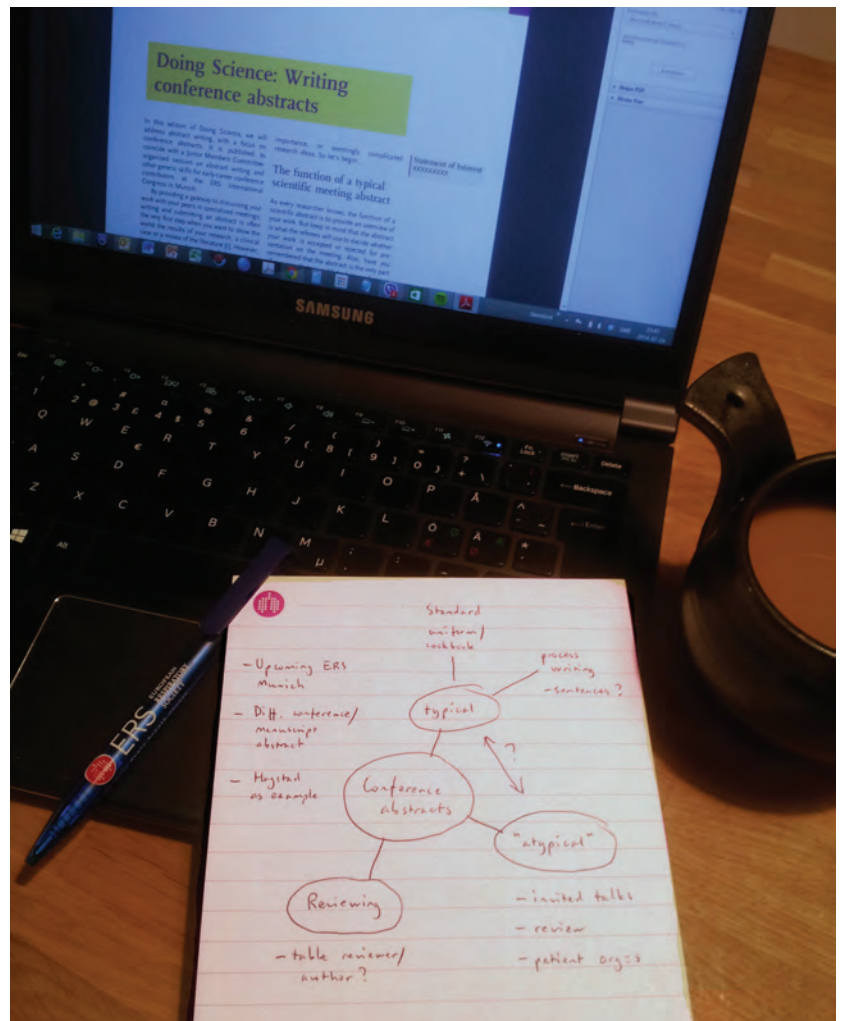 Doing Science: Writing
conference abstracts
In this edition of Doing Science, we will
address abstract writing, with a focus on
conference abstracts. It is published to
coincide with a Junior Members Committee
organised session on abstract writing and
other generic skills for early-career conference
contributors at the ERS International
Congress in Munich.
By providing a gateway to discussing your
work with your peers in specialised meetings,
writing and submitting an abstract is often
the very first step when you want to show the
world the results of your research, a clinical
case or a review of the literature [1]. However,
importance, or seemingly complicated
research ideas. So let's begin...
The function of a typical
scientific meeting abstract
As every researcher knows, the function of a
scientific abstract is to provide an overview of
your work. But keep in mind that the abstract
is what the referees will use to decide whether
your work is accepted or rejected for pre-
sentation at the meeting. Also, have you
remembered that the abstract is the only part
Statement of Interest
XXXXXXXXX
SAMSUNG
Delete
Backspace
Enter
Q W E R T Y U I O P Å
A S D F G H J K L Ö Ä
Z X C V B N M
µ
Alt
EUROPEAN
RESPIRATORY
SOCIETY
ERS
Standard
uniform/
cookbook
process
writing
- sentences?
- Upcoming ERS
Munich
typical
- Diff. conference/
manuscript
abstract
?
as example
Conference
abstracts
"atypical"
Reviewing
- invited talks
- review
- patient org:s
- table reviewer/
author?